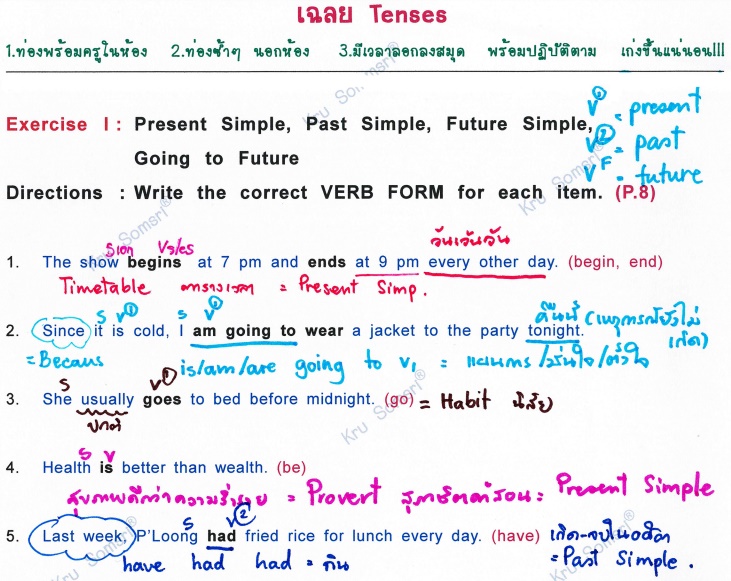 เฉลย Tenses
1.ท่องพร้อมครูในห้อง 2.ท่องซ้ำๆ นอกห้อง 3.มีเวลาลอกลงสมุด พร้อมปฏิบัติตาม เก่งขึ้นแน่นอน!!!
V① = present
Exercise I : Present Simple, Past Simple, Future Simple,
V② = past
Going to Future
VF = future
Directions : Write the correct VERB FORM for each item. (P.8)
Sเอก Vs/es วันเว้นวัน
1. The show begins at 7 pm and ends at 9 pm every other day. (begin, end)
Timetable ตารางเวลา = Present Simp.
S V① S V① คืนนี้ (เหตุการณ์ยังไม่เกิด)
2. Since it is cold, I am going to wear a jacket to the party tonight.
= Becaus is/am/are going to V1 = แผนการ/มั่นใจ/ตั้งใจ
S V①
3. She usually goes to bed before midnight. (go) = Habit นิสัย
ปกติ
S V
4. Health is better than wealth. (be)
สุขภาพดีกว่าความร่ำรวย = Provert สุภาษิตคำสอน = Present Simple
S V②
5. Last week, P'Loong had fried rice for lunch every day. (have) เกิด-จบในอดีต
have had had = กิน = Past Simple.
Kru Somsri®
Kru Somsri®
Kru Somsri®
Kru Somsri®